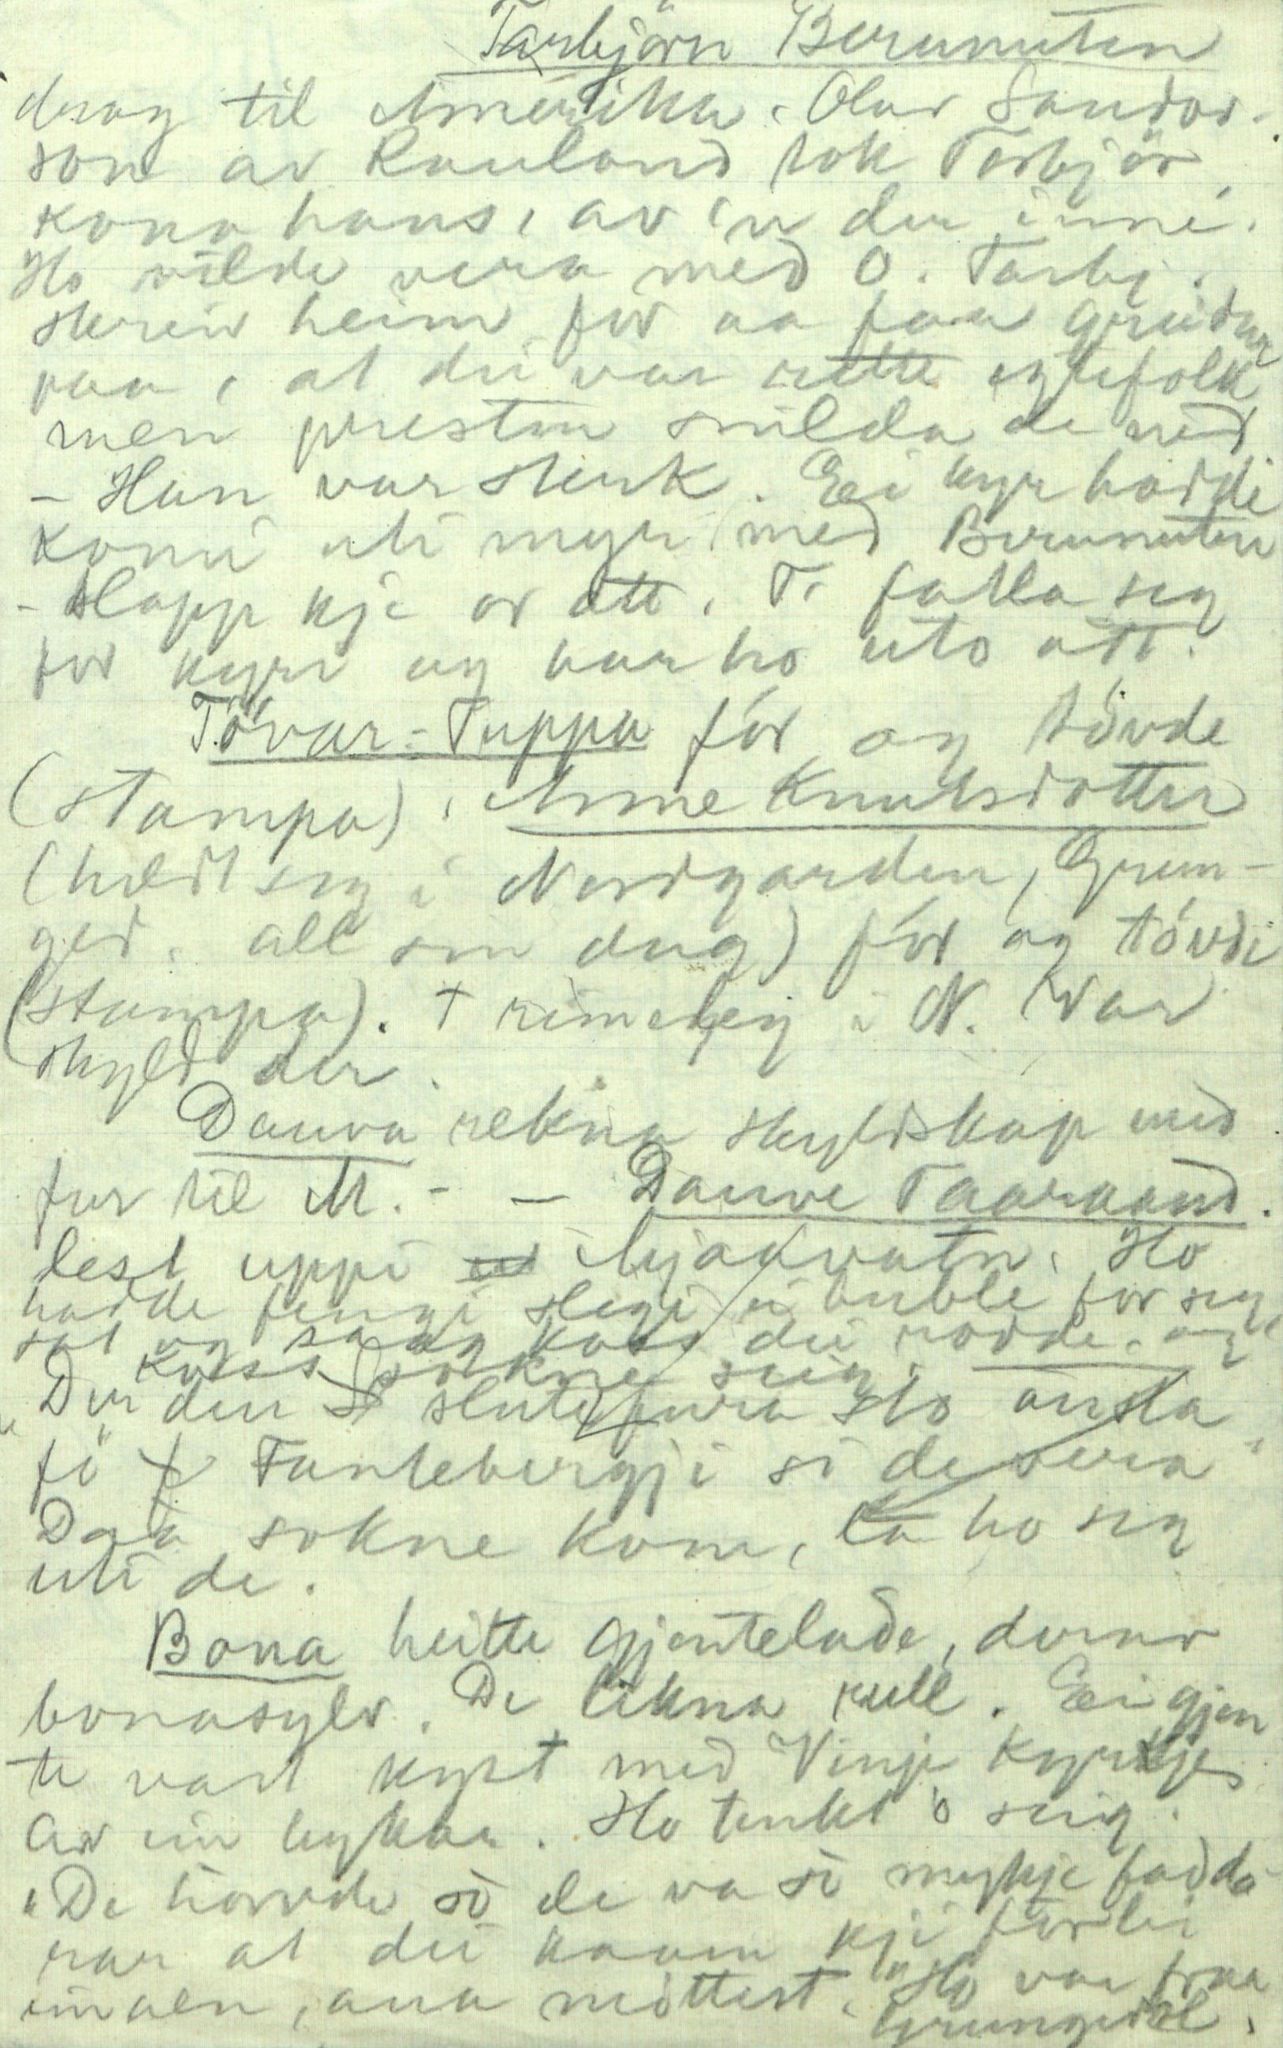 Tarbjörn Berunuten
drog til Amerika. Olav Sandor-
son av Rauland tok Torbjör,
kona hans, av 'n der inne.
Ho vilde vera med O. Tarbj.
skreiv heim for aa faa greidur
paa, at dei var rette egtefolk
men presten smilda de ned
- Han var sterk. Ei kyr hadde
komi uti myr med Berunuten
- slapp kje or att. T. fatla seg
for kyri og bar ho uto att.
Tövar-Tuppa fór og tövde
(stampa). Anne Knutsdotter
(heldt seg i Nordgarden, Grun-
ged. all sin dag) fór og tövde
(stampa). † rimeleg i N. Var
skyld der.
Dauva rekna skyldskap med
fur til M. - - Dauve Taaraand.
lest uppi i Mjaavatn. Ho
hadde fengi slegi ei buble for seg
sat og saag koss dei rodde. og
koss sokne seig.
"Der den Ho ansla
fö Fantebergji si de vera"
Daa sokne kom, la ho seg
uti de.
Bona heitte gjentelade, derav
bonasylv. De likna rull. Ei gjen
te vart kyst med Vinje kyrkje
av ein lykar. Ho tenkt o seig.
"De hövde so de va so mykje fadda
rar at dei kaam kji forbi
einaen, ana nöttest." Ho var fraa
Grungedal.